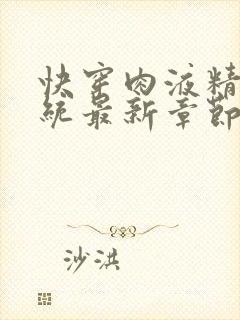 快穿肉液精
统最新章節
沙洪